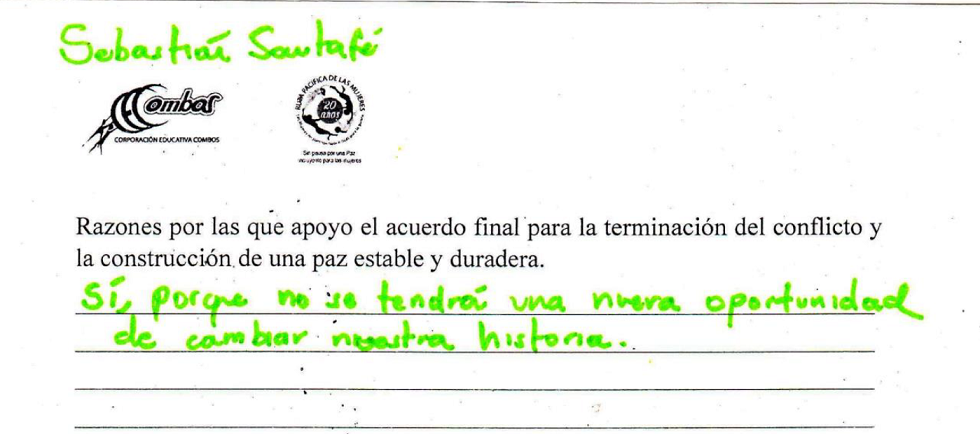 Sebastián Santafé
Combos
CORPORACIÓN EDUCATIVA COMBOS
RUTA PACÍFICA DE LAS MUJERES
20
años
Sin pausa por una Paz
incluyente para las mujeres
Razones por las que apoyo el acuerdo final para la terminación del conflicto y
la construcción de una paz estable y duradera.
Sí, porque no se tendrá una nueva oportunidad
de cambiar nuestra historia.